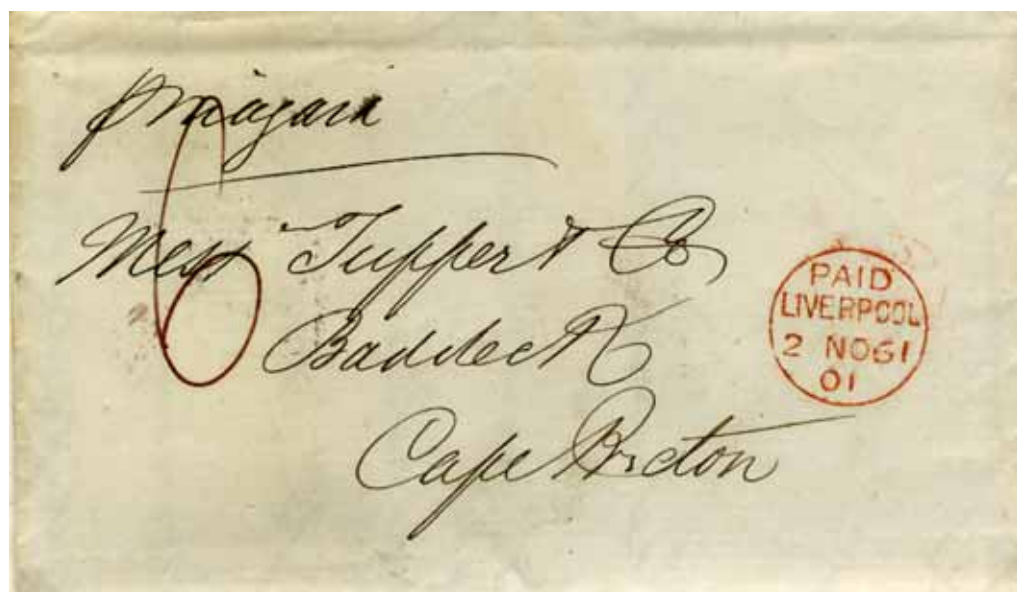 p Niagara
6
Mess Tupper & Co
Baddeck
Cape Breton
PAID
LIVERPOOL
2 NO 61
01